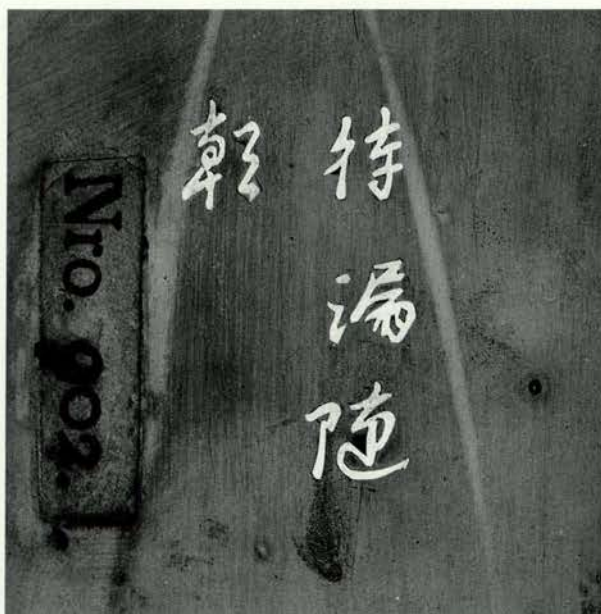 待漏隨
朝
Nro. 902.